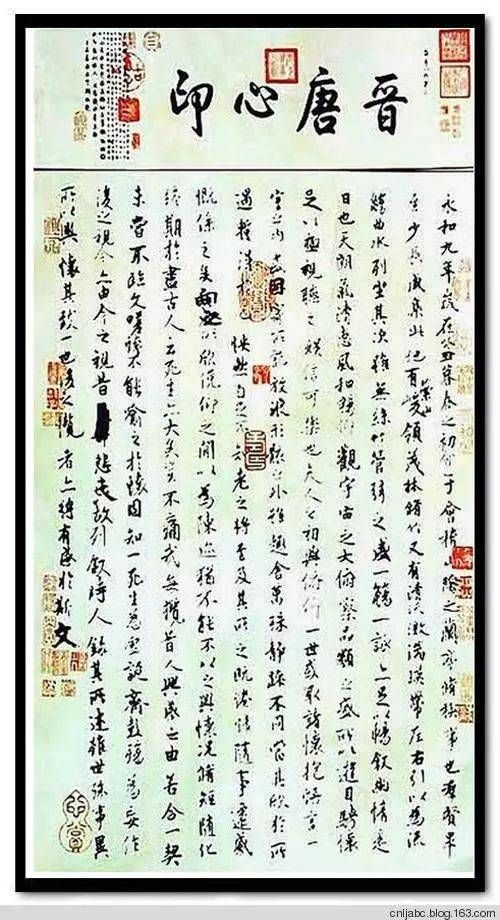 晉唐心印
永和九年歲在癸丑暮春之初會于會稽山陰之蘭亭脩稧事也羣賢畢
至少長咸集此地有崇山峻領茂林脩竹又有清流激湍暎帶左右引以為流
觴曲水列坐其次雖無絲竹管弦之盛一觴一詠亦足以暢敘幽情是
日也天朗氣清惠風和暢仰觀宇宙之大俯察品類之盛所以遊目騁懷
足以極視聽之娛信可樂也夫人之相與俯仰一世或取諸懷抱悟言一
室之內或因寄所託放浪形骸之外雖趣舍萬殊靜躁不同當其欣於所
遇輙得於己快然自足不知老之將至及其所之既惓情隨事遷感
慨係之矣向之所欣俛仰之閒以為陳迹猶不能不以之興懷況脩短隨化
終期於盡古人云死生亦大矣豈不痛哉每攬昔人興感之由若合一契
未嘗不臨文嗟悼不能喻之於懷固知一死生為虛誕齊彭殤為妄作
後之視今亦由今之視昔悲夫故列敘時人錄其所述雖世殊事異
所以興懷其致一也後之攬者亦將有感於斯文
cnljabc.blog.163.com